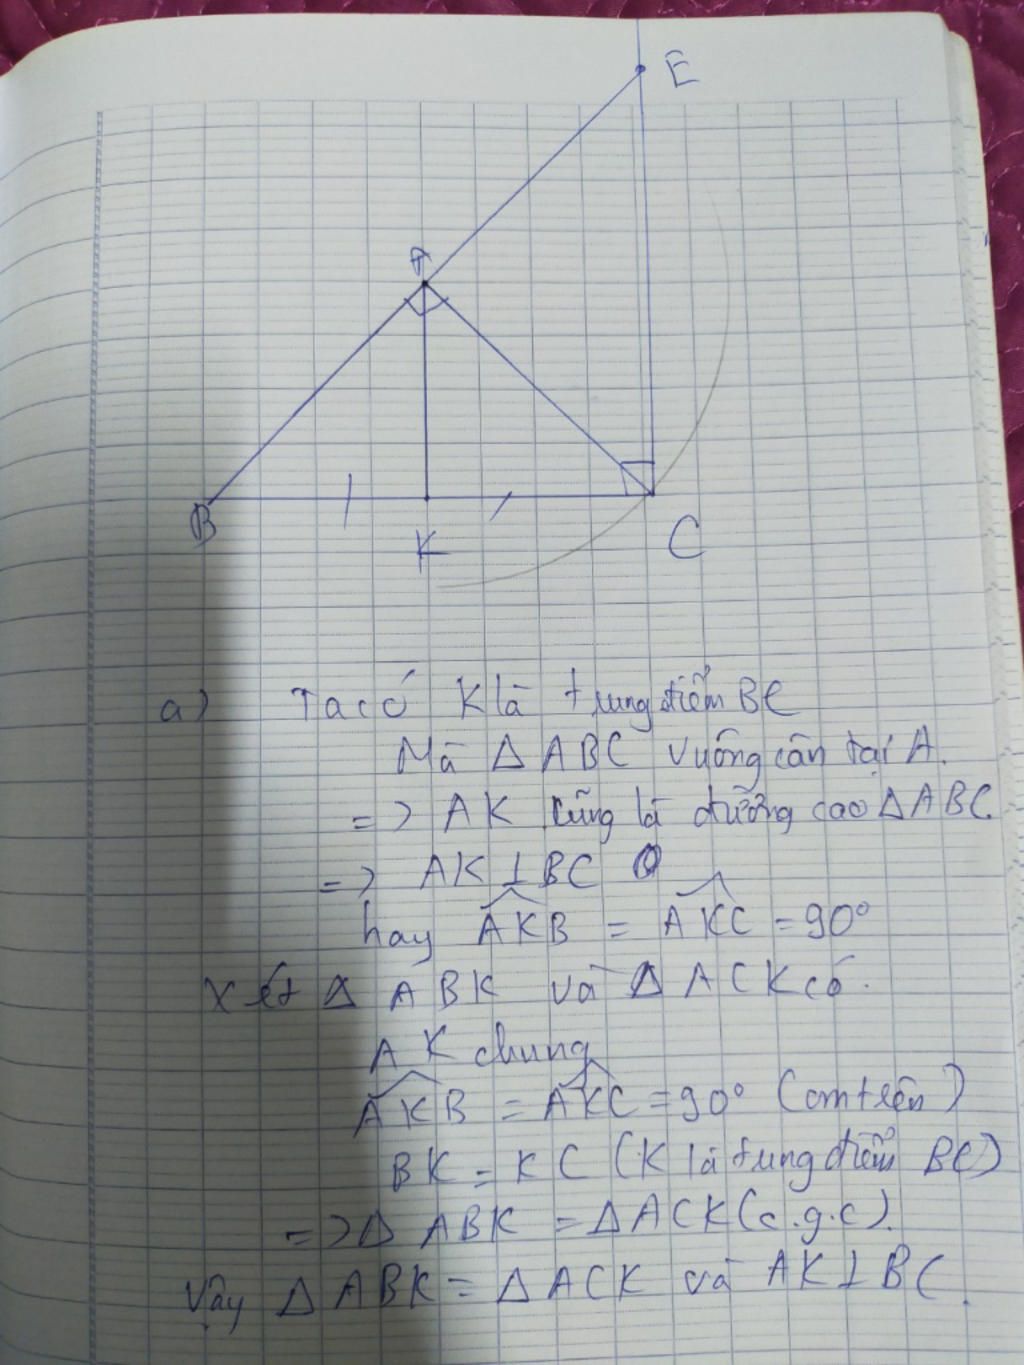 E
A
B
K
C
a) Ta có K là trung điểm BC
Mà Δ ABC vuông cân tại A.
=> AK cũng là đường cao Δ ABC
=> AK ⊥ BC
hay \widehat{AKB} = \widehat{AKC} = 90°
Xét Δ ABK và Δ ACK có.
AK chung
\widehat{AKB} = \widehat{AKC} = 90° (cmtrên)
BK = KC (K là trung điểm BC)
=> Δ ABK = Δ ACK (c.g.c).
Vậy Δ ABK = Δ ACK và AK ⊥ BC.